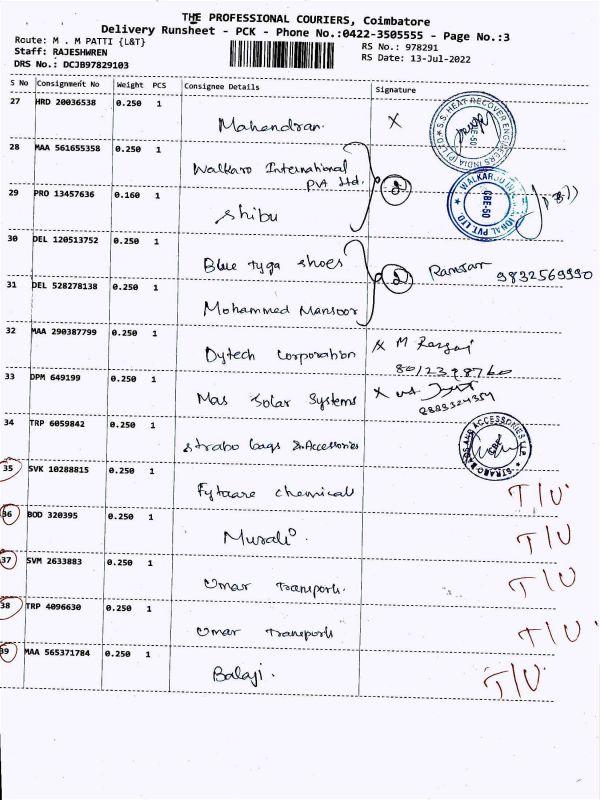 THE PROFESSIONAL COURIERS, Coimbatore
Delivery Runsheet - PCK - Phone No.:0422-3505555 - Page No.:3
Route: M . M PATTI {L&T}
RS No.: 978291
Staff: RAJESHWREN
RS Date: 13-Jul-2022
DRS No.: DCJB97829103
S No Consignment No Weight PCS Consignee Details Signature
27 HRD 20036538 0.250 1 Mahendran. X
S.S. HEAT RECOVER ENGINEERS INDIA (P) LTD
28 MAA 561655358 0.250 1 Walkaro International Pvt Ltd. 2
WALKAROO INTERNATIONAL PVT. LTD CBE-50
29 PRO 13457636 0.160 1 Shibu
30 DEL 120513752 0.250 1 Blue tyga shoes 2
9832569990
31 DEL 528278138 0.250 1 Mohammed Mansoor
32 MAA 290387799 0.250 1 Dytech Corporation X M
33 DPM 649199 0.250 1 Mas Solar Systems X
34 TRP 6059842 0.250 1 Strabo bags & Accessories
STRABO BAGS AND ACCESSORIES LLP
35 SVK 10288815 0.250 1 Fytaare chemical T/U
36 BOD 320395 0.250 1 Murali T/U
37 SVM 2633883 0.250 1 Omar Transports. T/U
38 TRP 4096630 0.250 1 Omar Transports T/U
39 MAA 565371784 0.250 1 Balaji. T/U